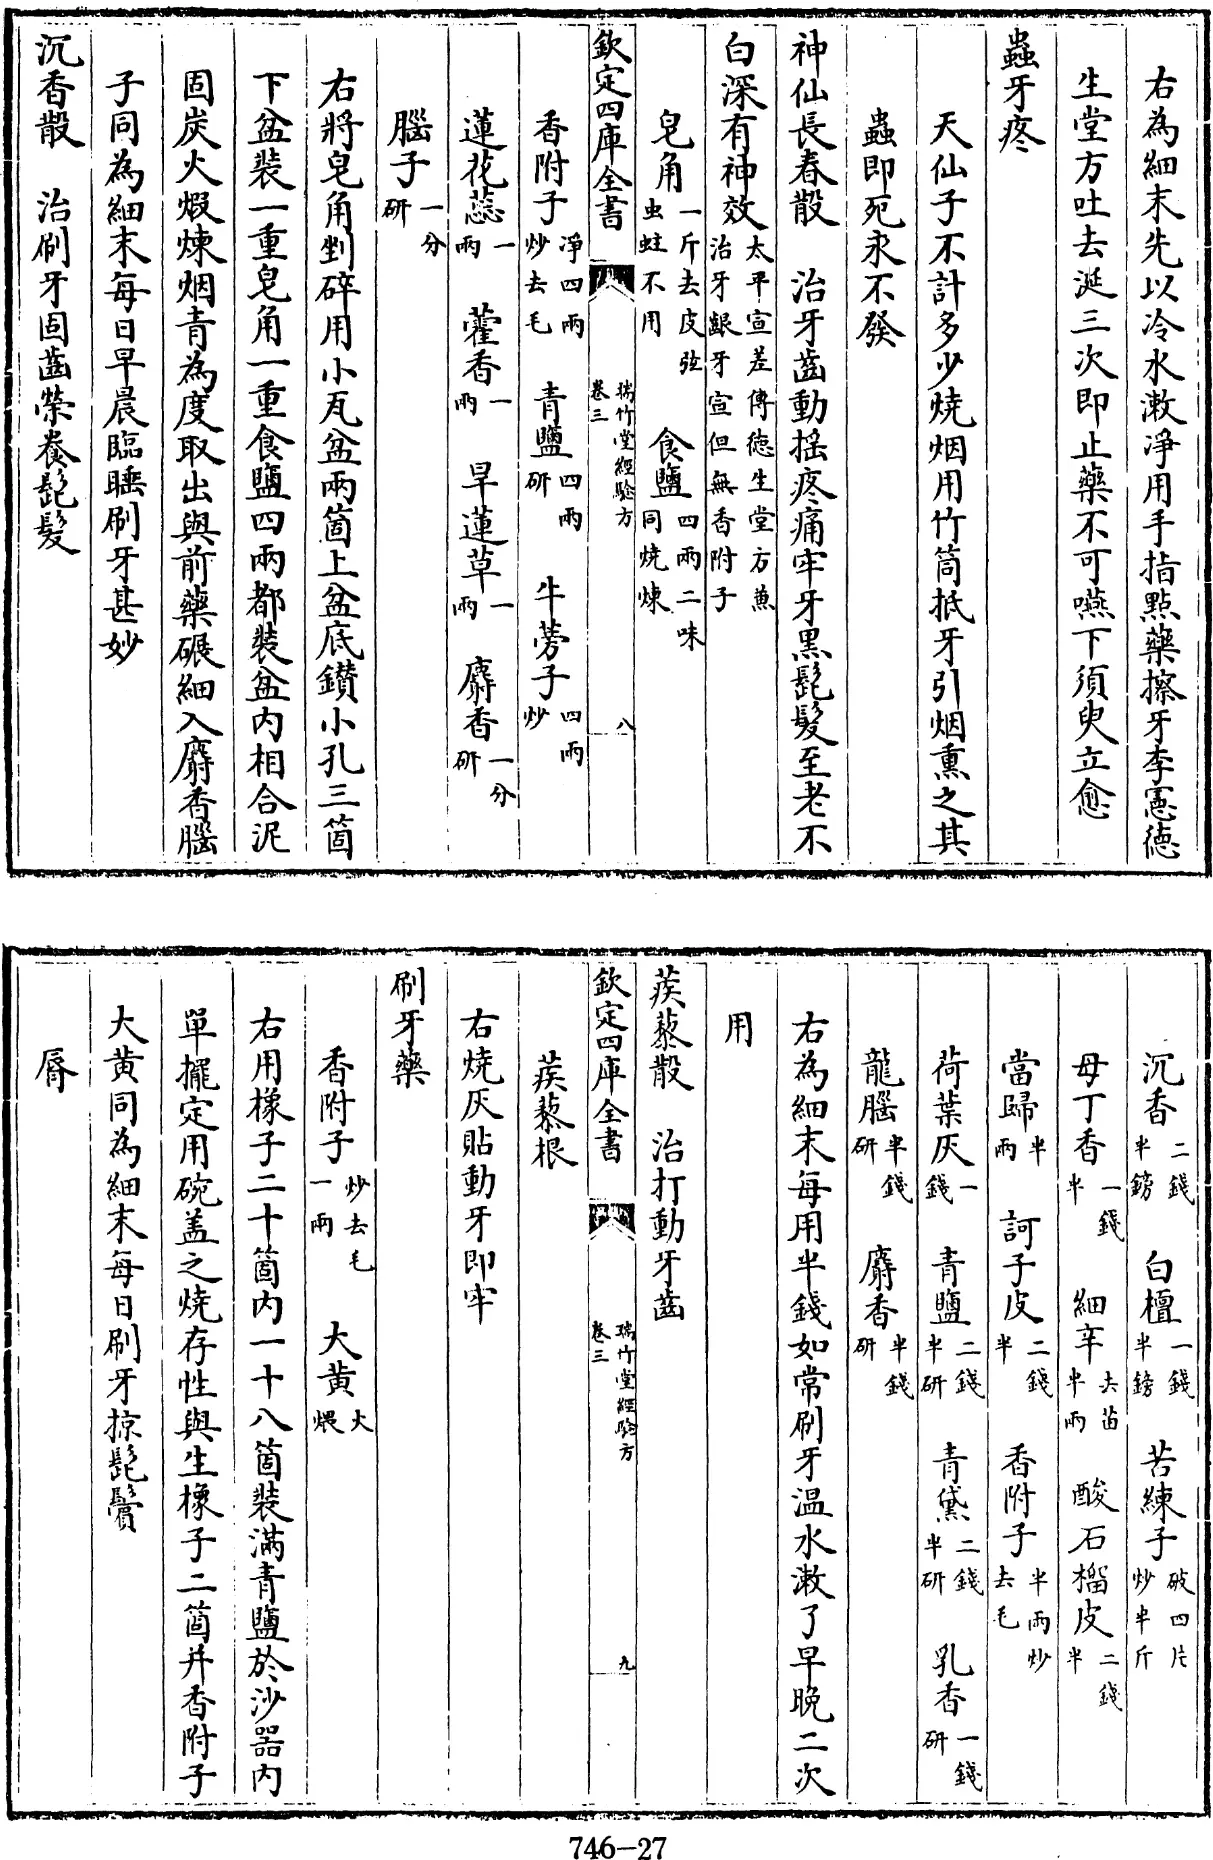 右為細末先以冷水漱淨用手指點藥擦牙李憲德
生堂方吐去涎三次即止藥不可嚥下須臾立愈
蟲牙疼
天仙子不計多少燒烟用竹筒抵牙引烟熏之其
蟲即死永不發
神仙長春散　治牙齒動搖疼痛牢牙黑髭髮至老不
白深有神效太平宣差傳德生堂方兼治牙齦牙宣但無香附子
皂角一斤去皮弦虫蛀不用　食鹽四兩二味同燒煉
欽定四庫全書　瑞竹堂經驗方卷三　八
香附子淨四兩炒去毛　青鹽四兩研　牛蒡子四兩炒
蓮花蕊一兩　藿香一兩　旱蓮草一兩　麝香一分研
腦子一分研
右將皂角剉碎用小瓦盆兩箇上盆底鑽小孔三箇
下盆裝一重皂角一重食鹽四兩都裝盆内相合泥
固炭火煅煉烟青為度取出與前藥碾細入麝香腦
子同為細末每日早晨臨睡刷牙甚妙
沉香散　治刷牙固齒榮養髭髮
沉香二錢半鎊　白檀一錢半鎊　苦練子破四片炒半斤
母丁香一錢半　細辛去苗半兩　酸石榴皮二錢半
當歸半兩　訶子皮二錢半　香附子半兩炒去毛
荷葉灰一錢　青鹽二錢半研　青黛二錢半研　乳香一錢研
龍腦半錢研　麝香半錢研
右為細末每用半錢如常刷牙温水漱了早晚二次
用
蒺藜散　治打動牙齒
欽定四庫全書　瑞竹堂經驗方卷三　九
蒺藜根
右燒灰貼動牙即牢
刷牙藥
香附子炒去毛一兩　大黄火煨
右用橡子二十箇内一十八箇裝滿青鹽於沙器内
單擺定用碗盖之燒存性與生橡子二箇并香附子
大黄同為細末每日刷牙掠髭鬢
唇
746-27